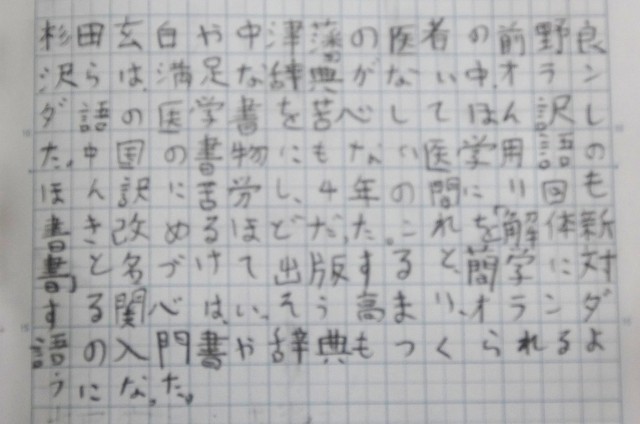 杉田玄白や中津藩の医者の前野良
沢らは、満足な辞典がない中、オラン
ダ語の医学書を苦心してほん訳し
た。中国の書物にもない医学用語の
ほん訳に苦労し、4年の間に11回も
書き改めるほどだった。これを「解体新
書」と名づけて出版すると、蘭学に対
する関心は、いっそう高まり、オランダ
語の入門書や辞典もつくられるよ
うになった。